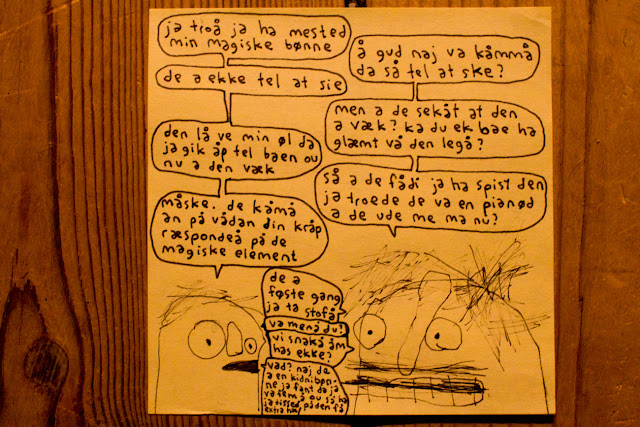 ja troå ja ha mested
min magiske bønne
å gud naj va kåmmå
da så tel at ske?
de a ekke tel at sie
men a de sekåt at den
a væk? ka du ek bae ha
glæmt vå den legå?
den lå ve min øl da
ja gik åp tel baen ou
nu a den væk
så a de fådi ja ha spist den
ja troede de va en pianød
a de ude me ma nu?
måske. de kåmå
an på vådan din kråp
ræspondeå på de
magiske element
de a
føste gang
ja ta stofå
va menå du!
vi snakå åm
has ekke?
vad? naj de
a en kidnibøn-
ne ja fant da ja
va fem å ou så ha
ja tissed på den få
extra